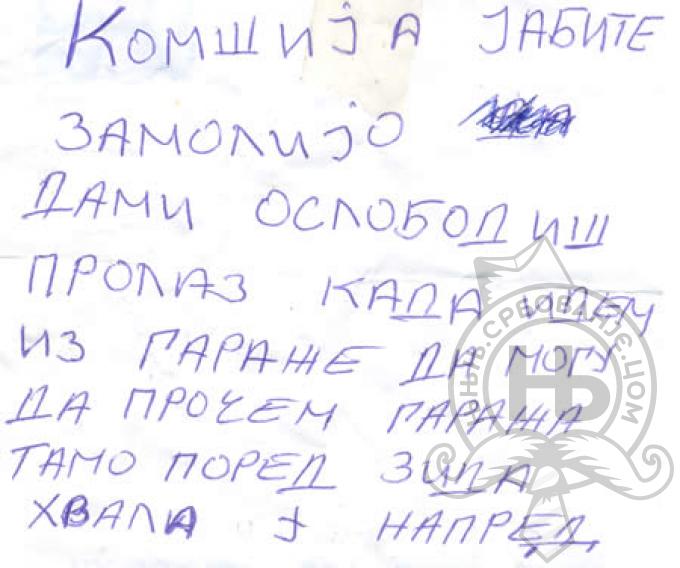 КОМШИЈА ЈАБИТЕ
ЗАМОЛИЈО
ДАМИ ОСЛОБОДИШ
ПРОЛАЗ КАДА ИДЕМ
ИЗ ГАРАЖЕ ДА МОГУ
ДА ПРОЧЕМ ГАРАЖА
ТАМО ПОРЕД ЗИДА
ХВАЛА Ј НАПРЕД